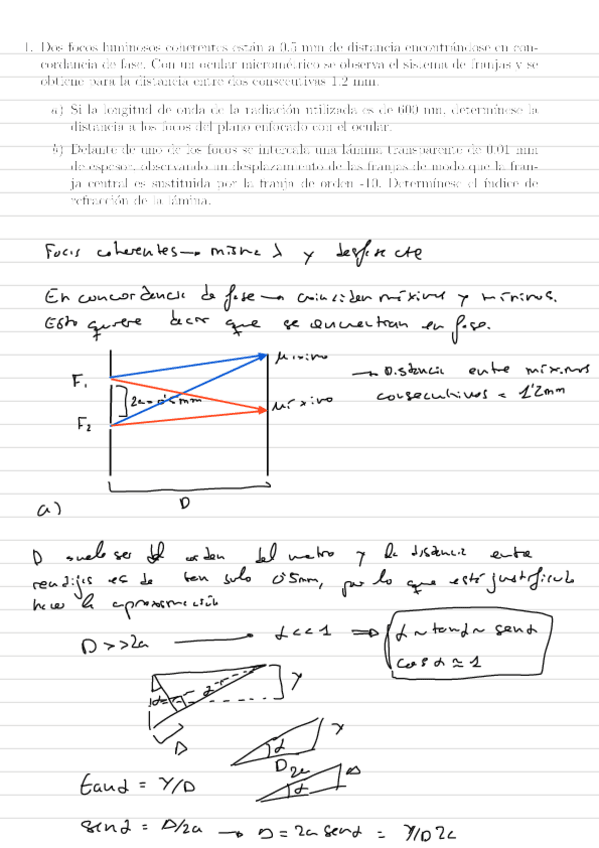 1. Dos focos luminosos coherentes están a 0.5 mm de distancia encontrándose en con-
cordancia de fase. Con un ocular micrométrico se observa el sistema de franjas y se
obtiene para la distancia entre dos consecutivas 1.2 mm.
a) Si la longitud de onda de la radiación utilizada es de 600 nm, determínese la
distancia a los focos del plano enfocado con el ocular.
b) Delante de uno de los focos se intercala una lámina transparente de 0.01 mm
de espesor, observando un desplazamiento de las franjas de modo que la fran-
ja central es sustituida por la franja de orden -10. Determínese el índice de
refracción de la lámina.
Focos coherentes → misma λ y desfase cte
En concordancia de fase → coinciden máximos y mínimos.
Esto quiere decir que se encuentran en fase.
F₁
F₂
2a = 0'5mm
Máximo
Máximo
→ Distancia entre máximos
consecutivos = 1'2mm
D
a)
D suele ser del orden del metro y la distancia entre
rendijas es de tan solo 0'5mm, por lo que está justificado
hacer la aproximación
D>>2a → α<<1 ⇒ α ~ tanα ~ senα
cosα ≃ 1
α
Y
Δ
α
Y
D
2a
Δ
α
tanα = Y/D
senα = Δ/2a → Δ = 2a senα = Y/D 2a